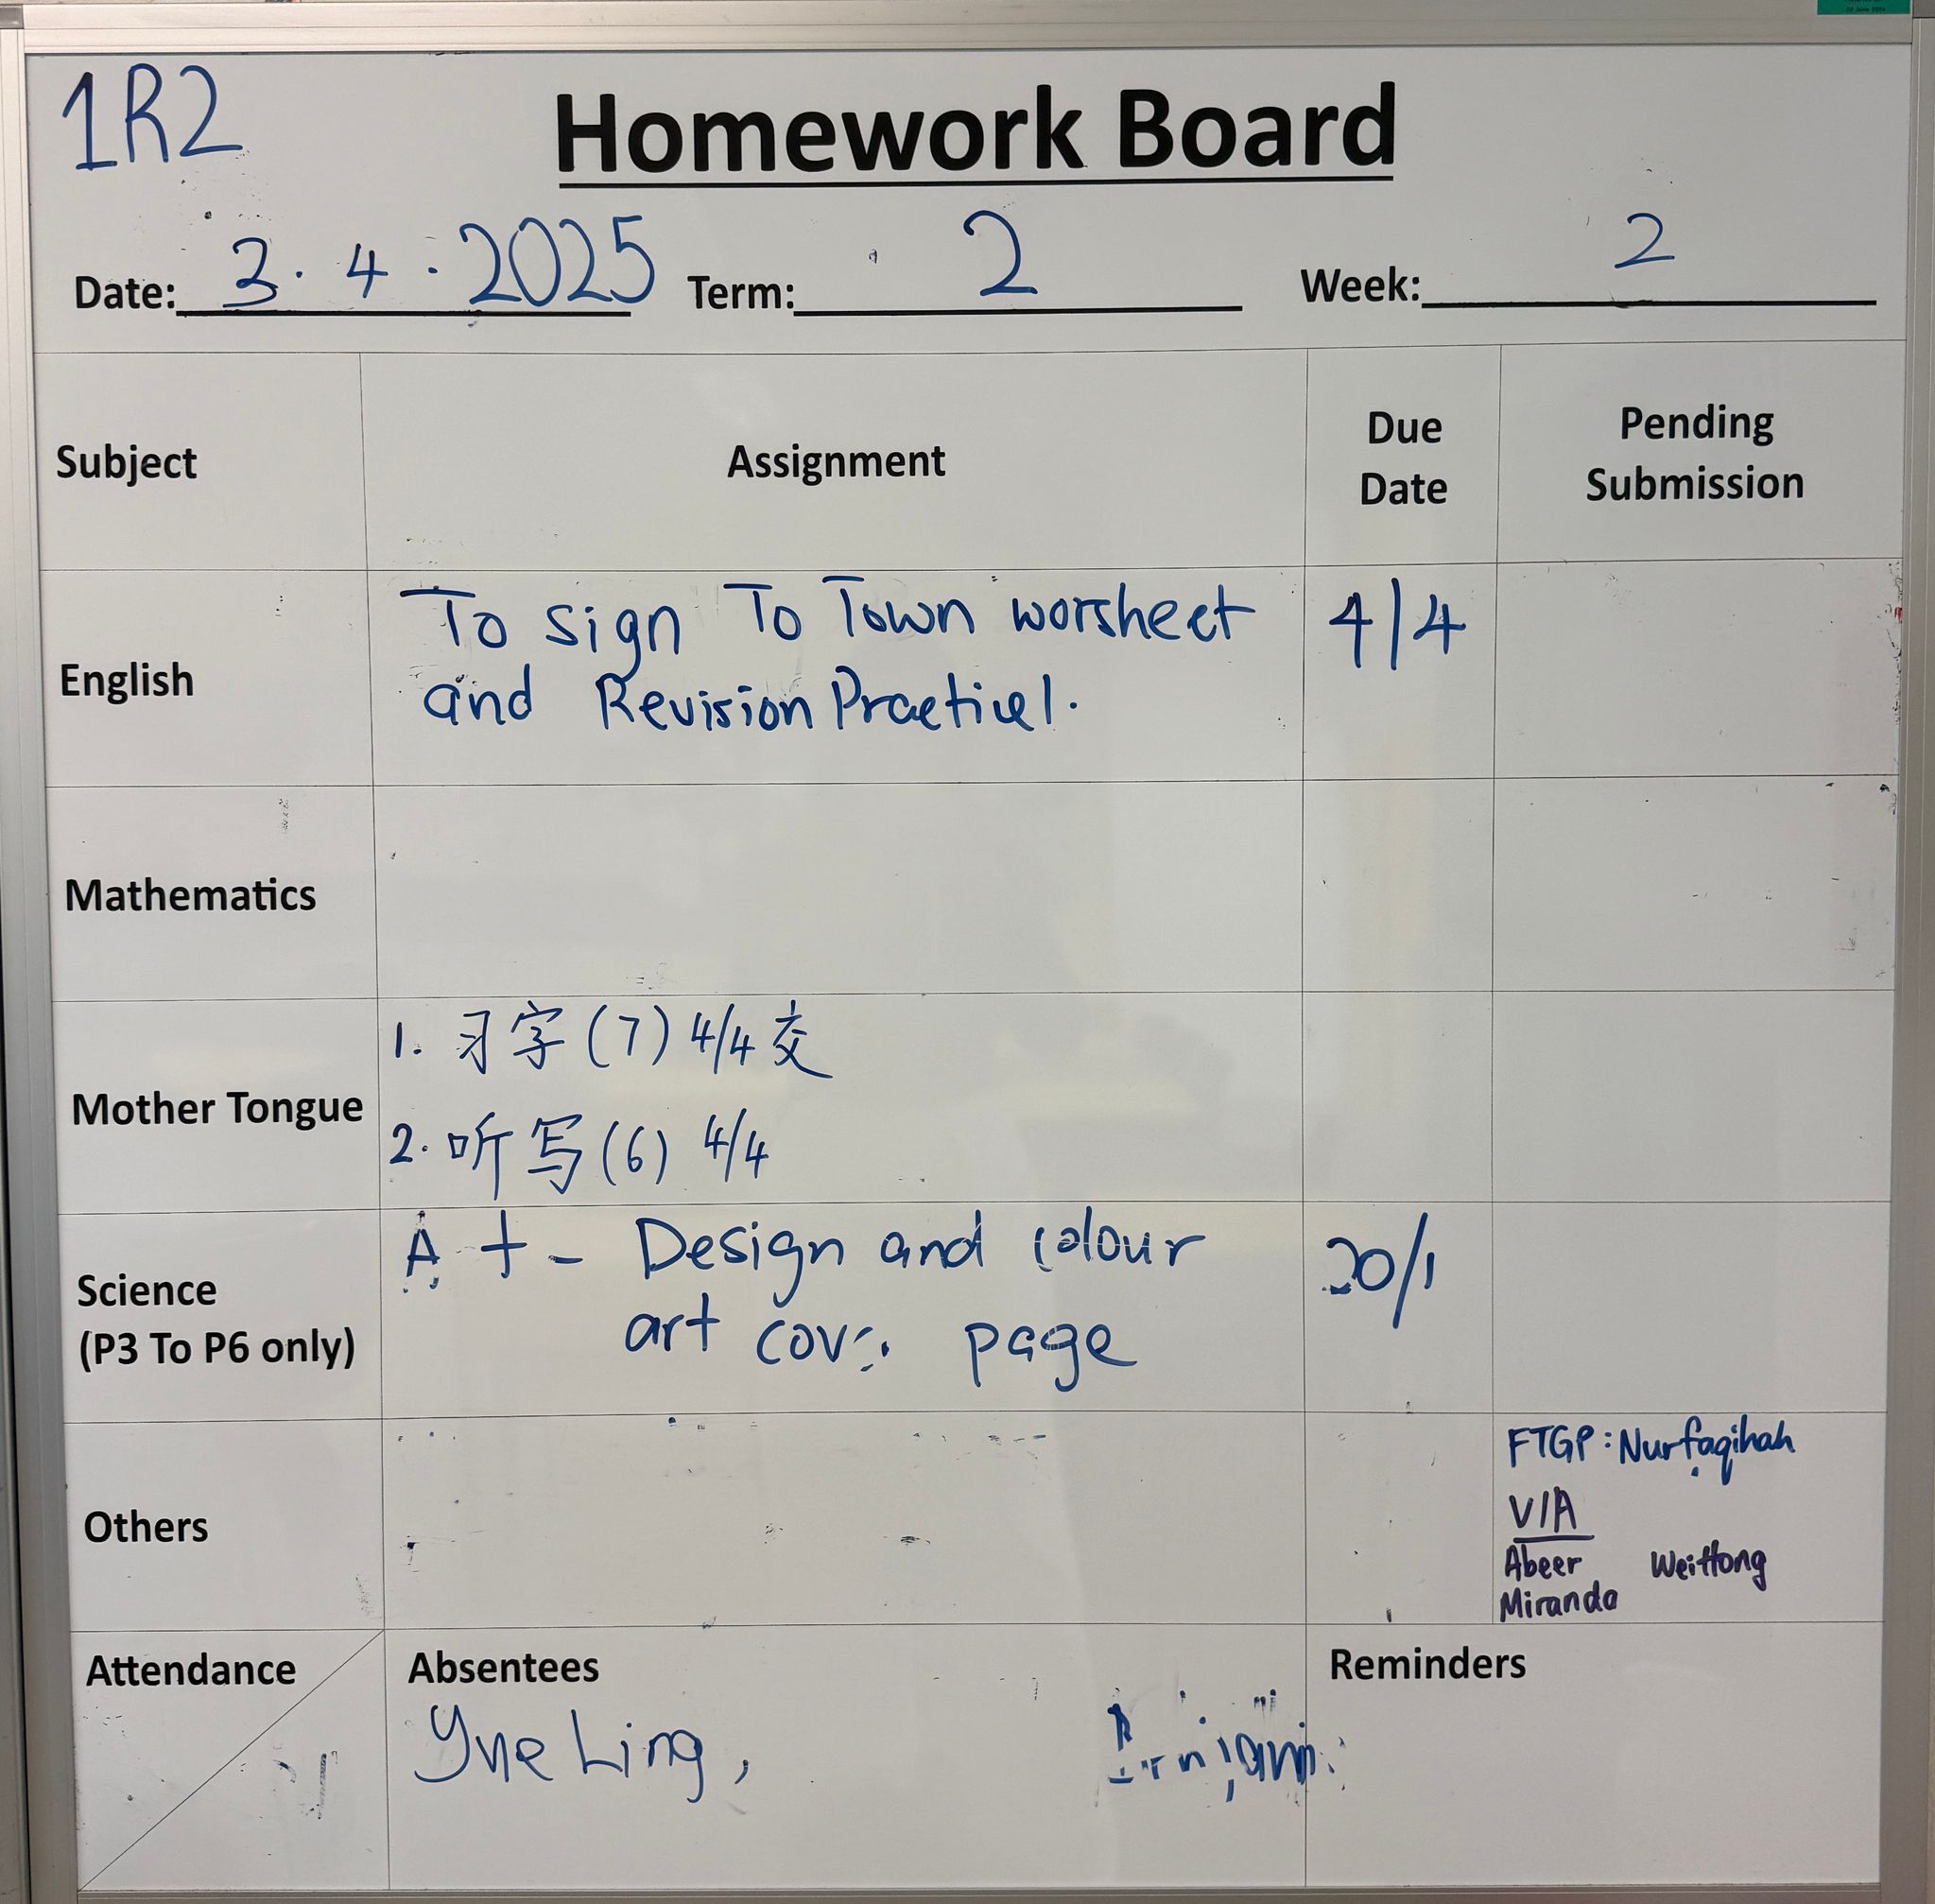 1R2
Homework Board
Date: 3.4.2025 Term: 2 Week: 2
Subject Assignment Due Date Pending Submission
English
To sign To Town worsheet 4/4
and Revision Practice 1.
Mathematics
Mother Tongue
1. 习字(7) 4/4交
2. 听写(6) 4/4
Science
(P3 To P6 only)
A t - Design and colour 20/1
art page
Others
FTGP: Nurfaqihah
VIA
Abeer Weittong
Miranda
Attendance Absentees Reminders
Yue Ling,